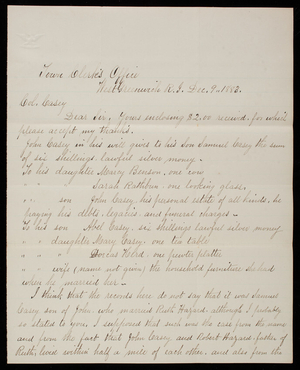 Town Clerk's Office
West Greenwich R.I. Dec. 9, 1883.
Col. Casey
Dear Sir, Yours inclosing $2.00 received, for which
please accept my thanks.
John Casey in his will gives to his son Samuel Casey the sum
of six shillings lawful silver money.
To his daughter Mercy Benson, one cow
" " " Sarah Rathbun, one looking glass,
" " son John Casey, his personal estate of all kinds, he
paying his debts, legacies and funeral charges.
To his son Abel Casey, six shillings lawful silver money
" " daughter Mary Casey, one tea table
" " " Dorcas Weld, one pewter platter
" " wife (name not given) the household furniture she had
when he married her.
I think that the records here do not say that it was Samuel
Casey son of John who married Ruth Hazard, although I probably
so stated to you. I supposed that such was the case from the name
and from the fact that John Casey and Robert Hazard, father of
Ruth, lived within half a mile of each other, and also from the